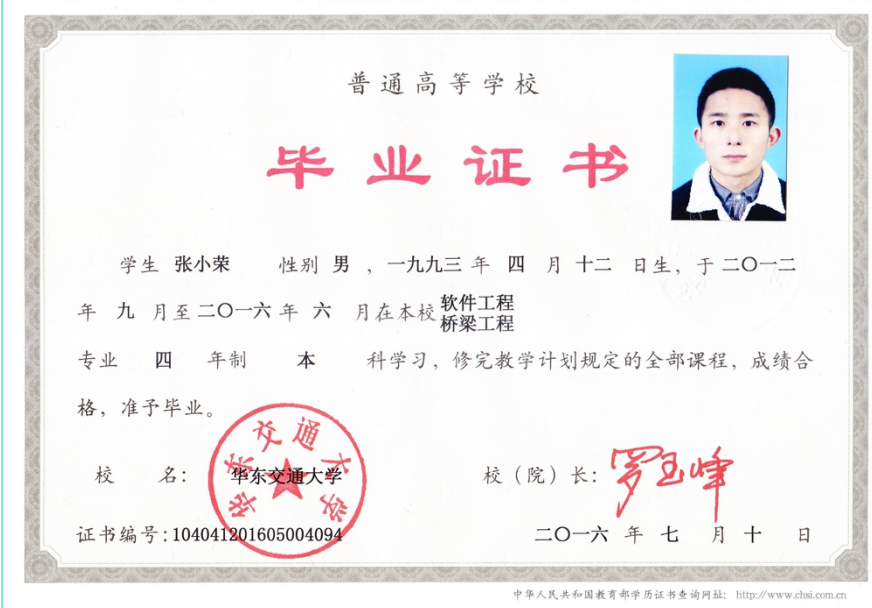 普通高等学校
毕业证书
学生 张小荣 性别 男 ，一九九三 年 四 月 十二 日生，于 二〇一二
年 九 月至 二〇一六 年 六 月在本校 软件工程
桥梁工程
专业 四 年制 本 科学习，修完教学计划规定的全部课程，成绩合
格，准予毕业。
华东交通大学
校 名： 华东交通大学 校（院）长： 罗玉峰
证书编号：104041201605004094 二〇一六 年 七 月 十 日
中华人民共和国教育部学历证书查询网址： http://www.chsi.com.cn